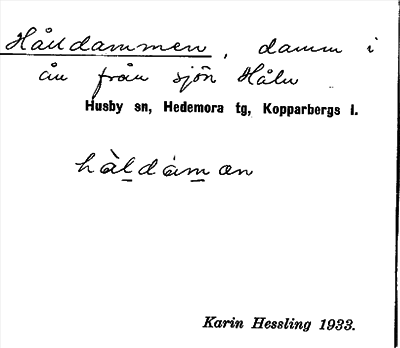 Håldammen, damm i
ån från sjön Håln
Husby sn, Hedemora tg, Kopparbergs l.
hàldámən
Karin Hessling 1933.